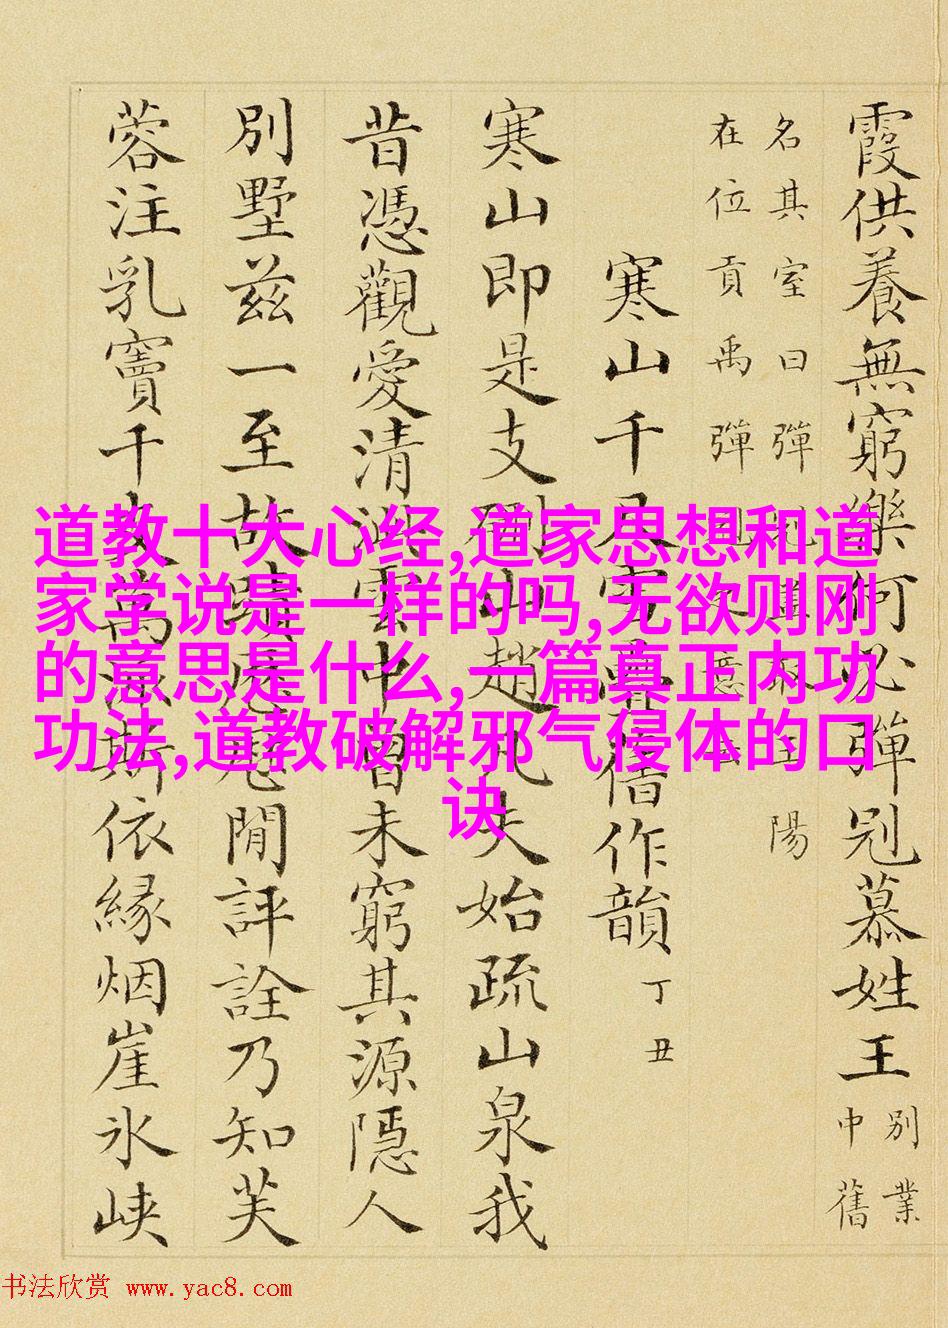 霞供養無窮樂何必彈冠慕姓王 別業中舊
名其室曰彈冠 陽
在位貢禹彈冠
寒山千尺雪疊舊作韻 丁丑
寒山即是支硎山趙凡夫始疏山泉我
昔憑觀愛清 雲中曾未窮其源隱人
別墅茲一至故蹟 閒評詮乃知芙
蓉注乳竇千丈萬派斯依緣烟崖氷峽
道教十大心经,道家思想和道
家学说是一样的吗,无欲则刚
的意思是什么,一篇真正内功
功法,道教破解邪气侵体的口
诀
书法欣赏 www.yac8.com